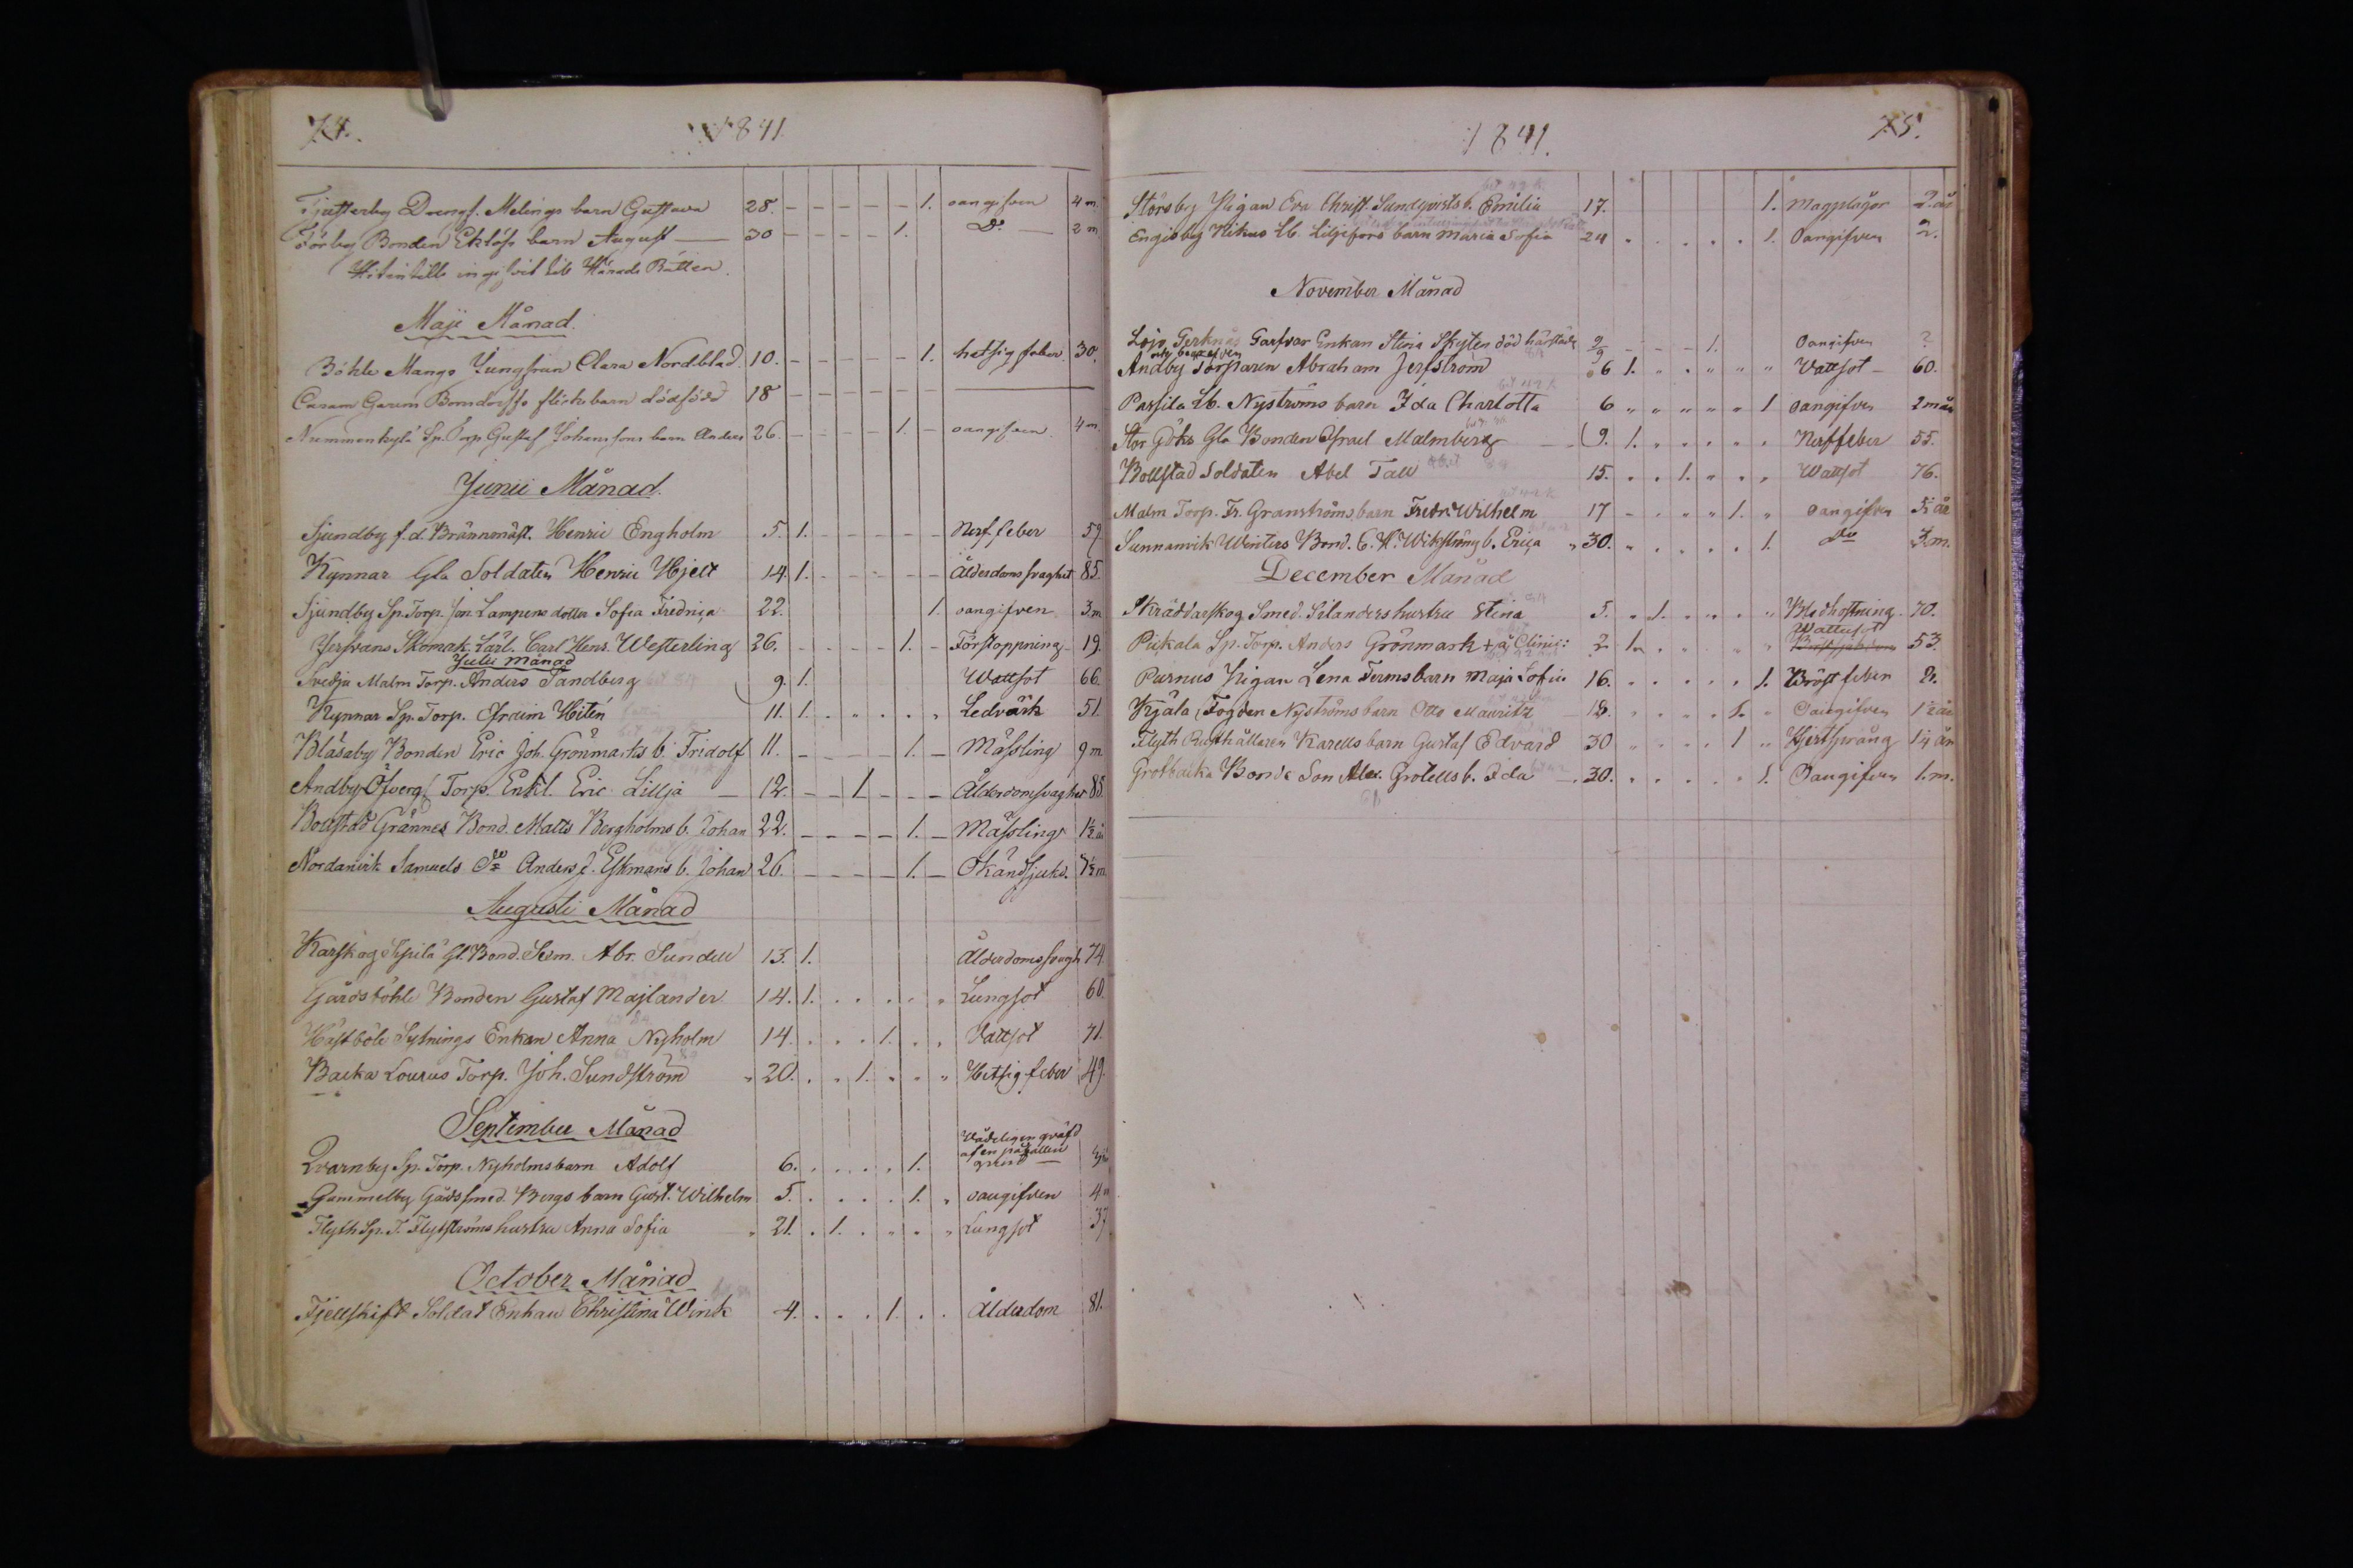 74. 1841
Tjusterby Drengs. Melings barn Gustava 28. - - - - - 1. oangifven 4 m.
Förby Bonden Eklöfs barn August — 30 - - - - 1. Do — 2 m
ingifvit till Härads Rätten.
Maji Månad.
Böhle Mangs Jungfrun Clara Nordblad. 10. - - - - - 1. hetsig feber. 30.
Bonsdorffs flickebarn dödfödd 18 - - - - -
Nummenkylä Sp. Torp. Gustaf Johanssons barn Anders 26. - - - - 1. - oangifven. 4 m
Junii Månad.
Sjundby f.d. Brännmäst. Henric Engholm 5. 1. - - - - - Nerffeber 59
Kynnar Gla Soldaten Henric Hjelt 14. 1. - - - - - Ålderdomssvaghet 85.
Sjundby Sp. Torp. Joh. Lampens dotter Sofia Fredrica 22. 1. oangifven 3. m
Skomak. Lärl. Carl Henr. Westerling 26. - - - - 1. - Förstoppning 19.
Julii Månad
Svedja Malm Torp. Anders Sandberg 9. 1. Wattsot 66.
Kynnar Sp. Torp. Efraim Hitén 11. 1. . . . . . Ledvärk 51.
Blåsaby Bonden Eric Joh. Grönmarks b. Fridolf 11. - - - - 1. - Mässling 9 m
Andby Öfverg. Torp. Enkl. Eric Lillja — 12. - - 1. - - - Ålderdomsvaghet 85.
Bollstad Grännes Bond. Matts Bergholms b. Johan 22. - - - - 1. - Mässling 1½ år
Nordanvik Samuels Do Anders J. Ekmans b. Johan 26. - - - - 1. - Okänd Sjukd. 7½ m
Augusti Månad
Karskog Sjpilä Gl. Bond. Sem. Abr. Sundell 13. 1. Ålderdomssvagh 74.
Gårdsböhle Bonden Gustaf Majlander 14. 1. . . . . . Lungsot 60.
Hästböle Sytnings Enkan Anna Nyholm 14. . . . 1. . . Vattsot 71.
Backa Lourus Torp. Joh. Sundström 20. . . 1. . . . Hetsig feber 49.
September Månad
Qvarnby Sp. Torp. Nyholms barn Adolf 6. . . . . 1. Vådeligen qväfd af en påfallen grind
Gammelby Gårdssmed. Bergs barn Gust. Wilhelm 5. . . . . 1. . oangifven 4
Flyth Sp. T. Flytströms hustru Anna Sofia 21. . 1. . . . . Lungsot 37
October Månad
Fjellskift Soldat Enkan Christina Wink 4. . . . 1. . . Ålderdom 81.
1841. 75.
Störsby Pigan Eva Christ. Sundqvists b. Emilia 17. 1. Magplågor 2. år
Engisby Nikus Lb. Liljefors barn Maria Sofia 24 . . . . . 1. Oangifven 2.
November Månad
Lojo Terknäs Garfvar Enkan Stina Skyten död härstädes 2/9 - - - - 1. Oangifven ?
och begrafven
Andby Torparen Abraham Jerfström 6 1. . . . . . Vattsot - 60.
Passila Lb. Nyströms barn Ida Charlotta 6 . . . . . 1 oangifven 2 mån
Stor Göks Gla Bonden Israel Malmberg 9. 1. . . . . . Nerffeber 55.
Bollstad Soldaten Abel Tall 15. . . 1. . . . Wattsot 76.
Malm Torp. Fr. Granströms barn Fredr. Wilhelm 17 - . . . 1. . oangifven 5½ år
Sunnanvik Winters Bond. C. H. Wikströms b. Erica 30. . . . . . 1. Do 3. m.
December Månad
Skräddarskog Smed. Silanders hustru Stina 5. . 1. . . . . Blodhostning 70.
Pickala Sp. Torp. Anders Grönmark + å Clinic: 2 1. . . . . . Wattusot 53.
Purnus Pigan Lena Ferms barn Maja Sofia 16. . . . . . 1. Bröst feber 2.
Kjäla Fogden Nyströms barn Otto Mauritz 18. . . . . 1. . Oangifven 1½ år
Flyth Rusthållaren Karells barn Gustaf Edvard 30 . . . . 1 . Hjertsprång 1¼ år
Grotbacka Bonde Son Alex. Grotells b. Ida 30. . . . . . 1. Oangifven 1. m.